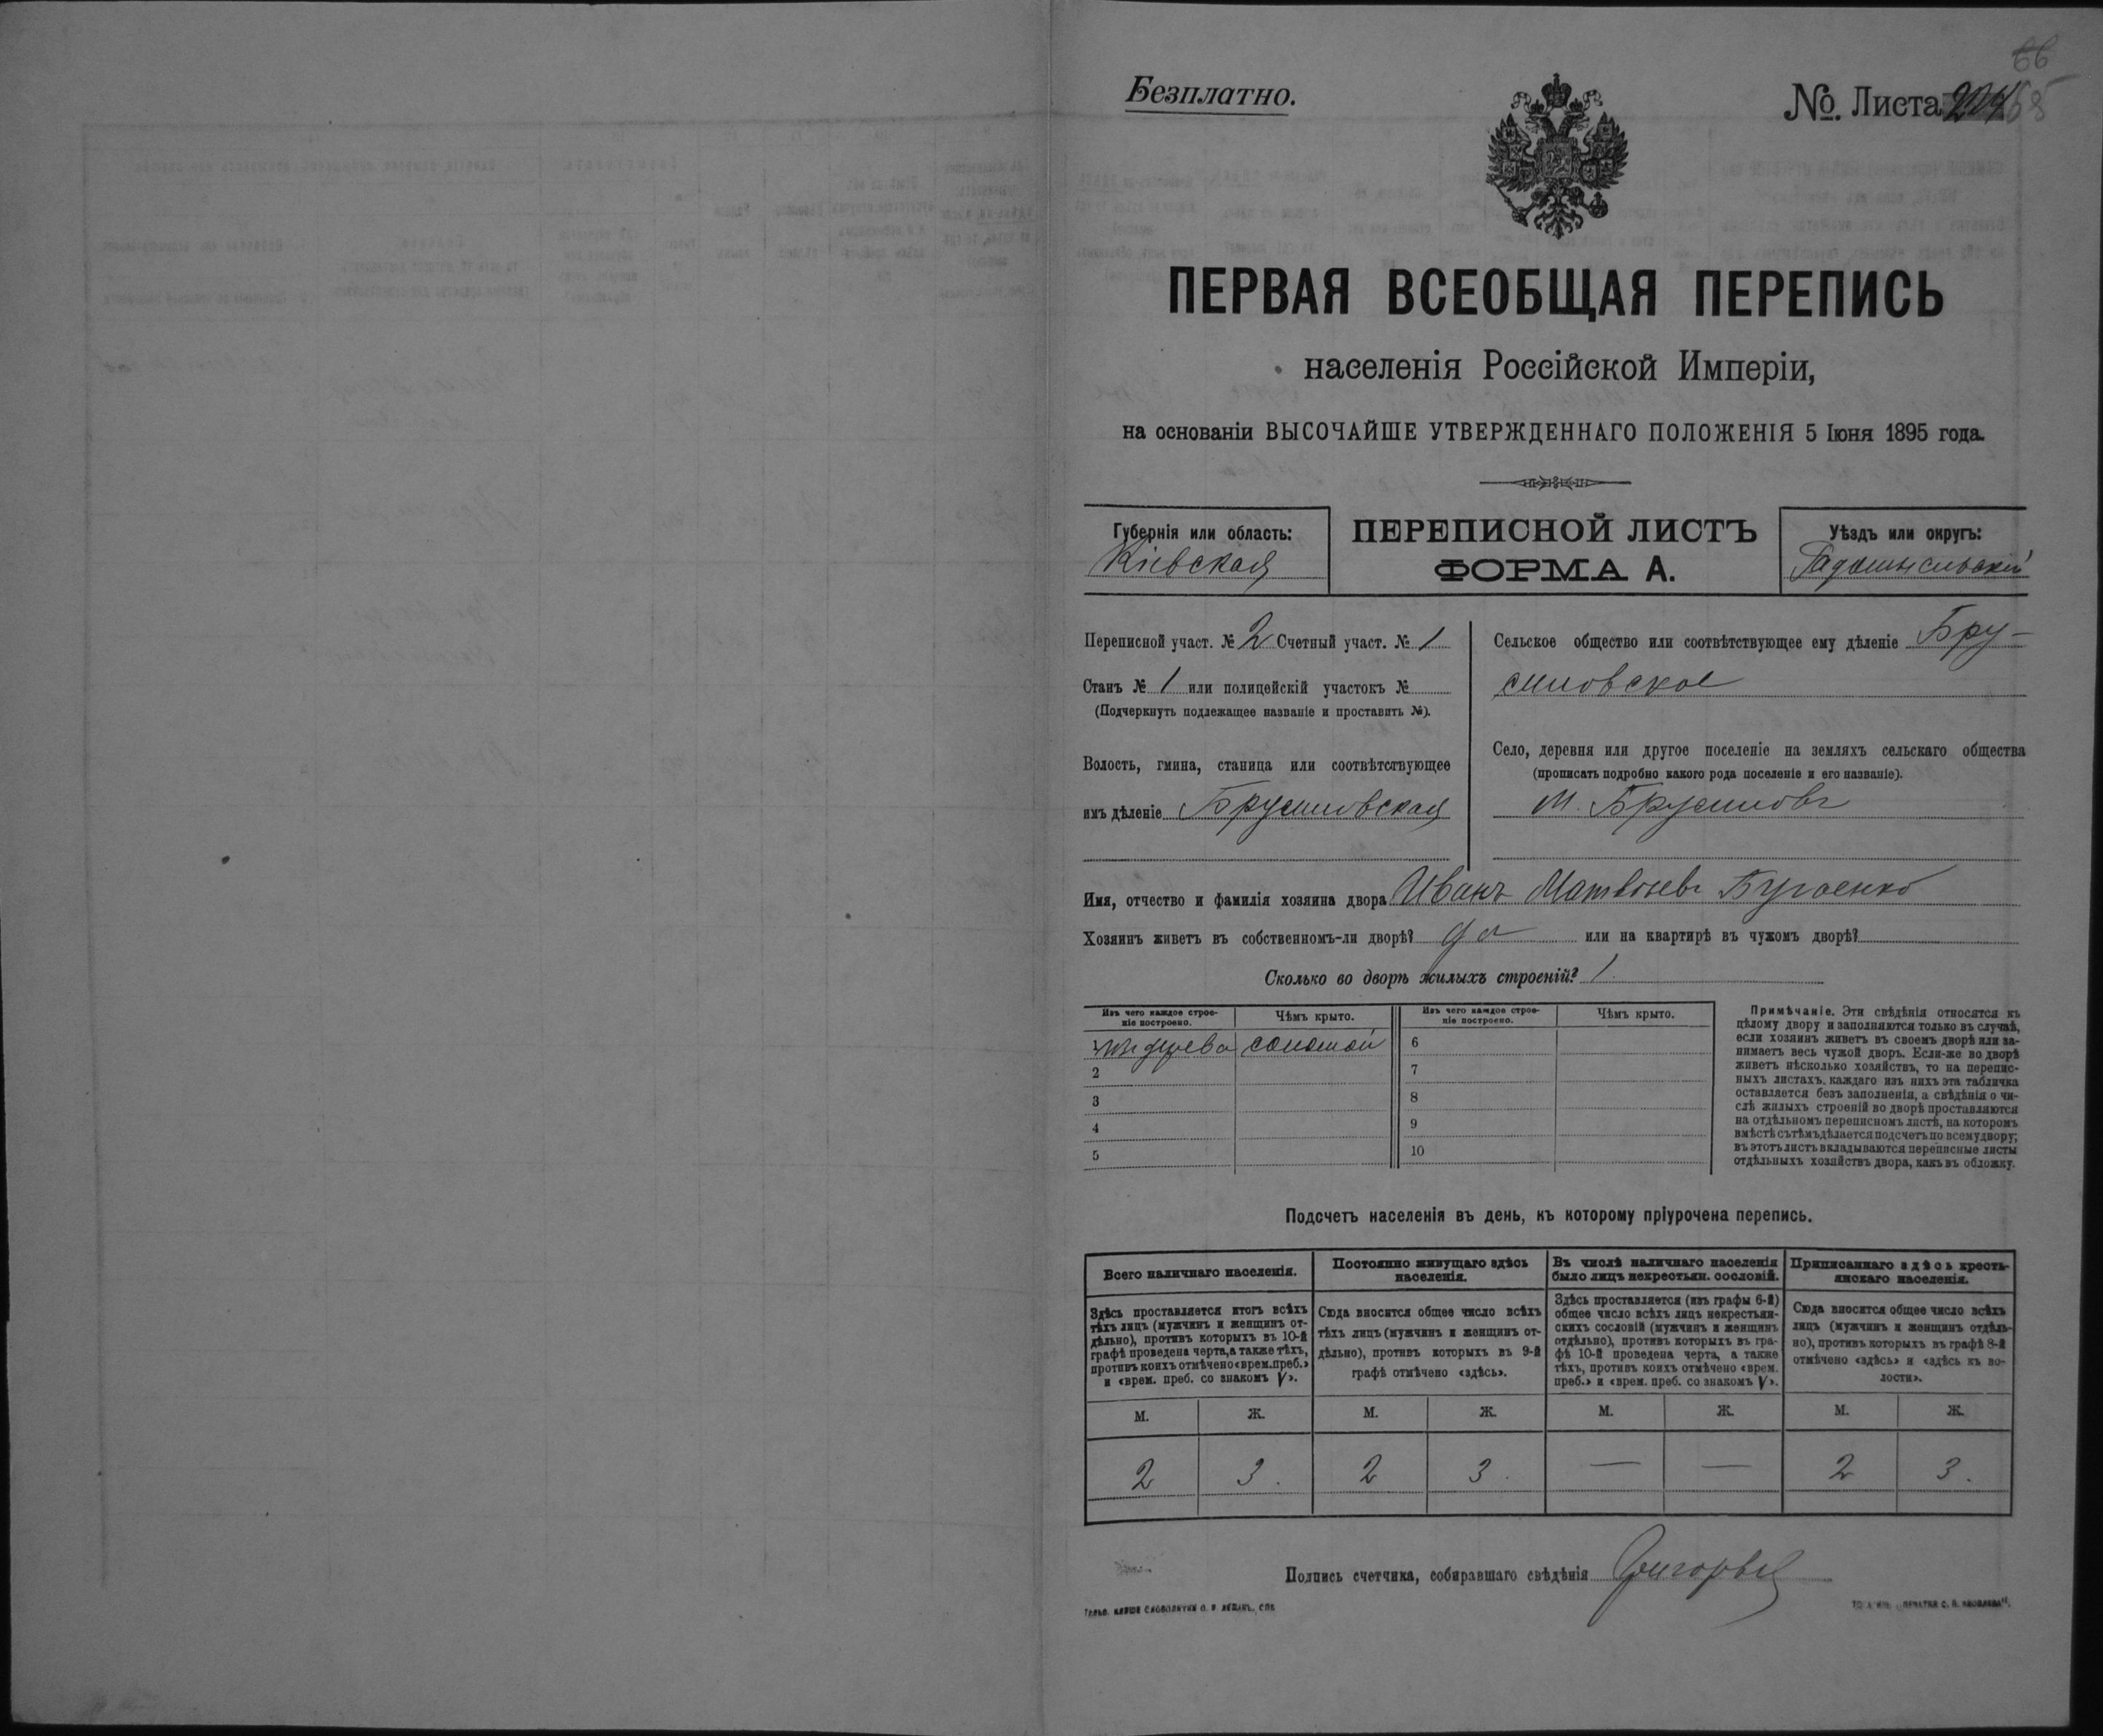 66
Безплатно.
№. Листа 204 65
ПЕРВАЯ ВСЕОБЩАЯ ПЕРЕПИСЬ
населенія Россійской Имперіи,
на основаніи ВЫСОЧАЙШЕ УТВЕРЖДЕННАГО ПОЛОЖЕНІЯ 5 Іюня 1895 года.
Губернія или область:
Кіевская
ПЕРЕПИСНОЙ ЛИСТЪ
ФОРМА А.
Уѣздъ или округъ:
Радомысльскій
Переписной участ. № 2 Счетный участ. № 1
Станъ № 1 или полицейскій участокъ №
(Подчеркнуть подлежащее названіе и проставить №).
Волость, гмина, станица или соотвѣтствующее
имъ дѣленіе Брусиловская
Сельское общество или соотвѣтствующее ему дѣленіе Бру-
силовское
Село, деревня или другое поселеніе на земляхъ сельскаго общества
(прописать подробно какого рода поселеніе и его названіе).
М. Брусиловъ
Имя, отчество и фамилія хозяина двора Иванъ Матвѣевъ Бугаенко
Хозяинъ живетъ въ собственномъ-ли дворѣ? да или на квартирѣ въ чужомъ дворѣ?
Сколько во дворѣ жилыхъ строеній? 1
Изъ чего каждое строе-
ніе построено.
Чѣмъ крыто.
Изъ чего каждое строе-
ніе построено.
Чѣмъ крыто.
1 изъ дерева соломой 6
2 7
3 8
4 9
5 10
Примѣчаніе. Эти свѣдѣнія относятся къ
цѣлому двору и заполняются только въ случаѣ,
если хозяинъ живетъ въ своемъ дворѣ или за-
нимаетъ весь чужой дворъ. Если-же во дворѣ
живетъ нѣсколько хозяйствъ, то на перепис-
ныхъ листахъ каждаго изъ нихъ эта табличка
оставляется безъ заполненія, а свѣдѣнія о чи-
слѣ жилыхъ строеній во дворѣ проставляются
на отдѣльномъ переписномъ листѣ, на которомъ
вмѣстѣ съ тѣмъ дѣлается подсчетъ по всему двору;
въ этотъ листъ вкладываются переписные листы
отдѣльныхъ хозяйствъ двора, какъ въ обложку.
Подсчетъ населенія въ день, къ которому пріурочена перепись.
Всего наличнаго населенія.
Здѣсь проставляется итогъ всѣхъ
тѣхъ лицъ (мужчинъ и женщинъ от-
дѣльно), противъ которыхъ въ 10-й
графѣ проведена черта, а также тѣхъ,
противъ коихъ отмѣчено «врем. преб.»
и «врем. преб. со знакомъ V».
Постоянно живущаго здѣсь
населенія.
Сюда вносится общее число всѣхъ
тѣхъ лицъ (мужчинъ и женщинъ от-
дѣльно), противъ которыхъ въ 9-й
графѣ отмѣчено «здѣсь».
Въ числѣ наличнаго населенія
было лицъ некрестьян. сословій.
Здѣсь проставляется (изъ графы 6-й)
общее число всѣхъ лицъ некрестьян-
скихъ сословій (мужчинъ и женщинъ
отдѣльно), противъ которыхъ въ гра-
фѣ 10-й проведена черта, а также
тѣхъ, противъ коихъ отмѣчено «врем.
преб.» и «врем. преб. со знакомъ V».
Приписаннаго здѣсь кресть-
янскаго населенія.
Сюда вносится общее число всѣхъ
лицъ (мужчинъ и женщинъ отдѣль-
но), противъ которыхъ въ графѣ 8-й
отмѣчено «здѣсь» и «здѣсь къ во-
лости».
М. Ж. М. Ж. М. Ж. М. Ж.
2 3. 2 3. — — 2 3.
Подпись счетчика, собиравшаго свѣдѣнія